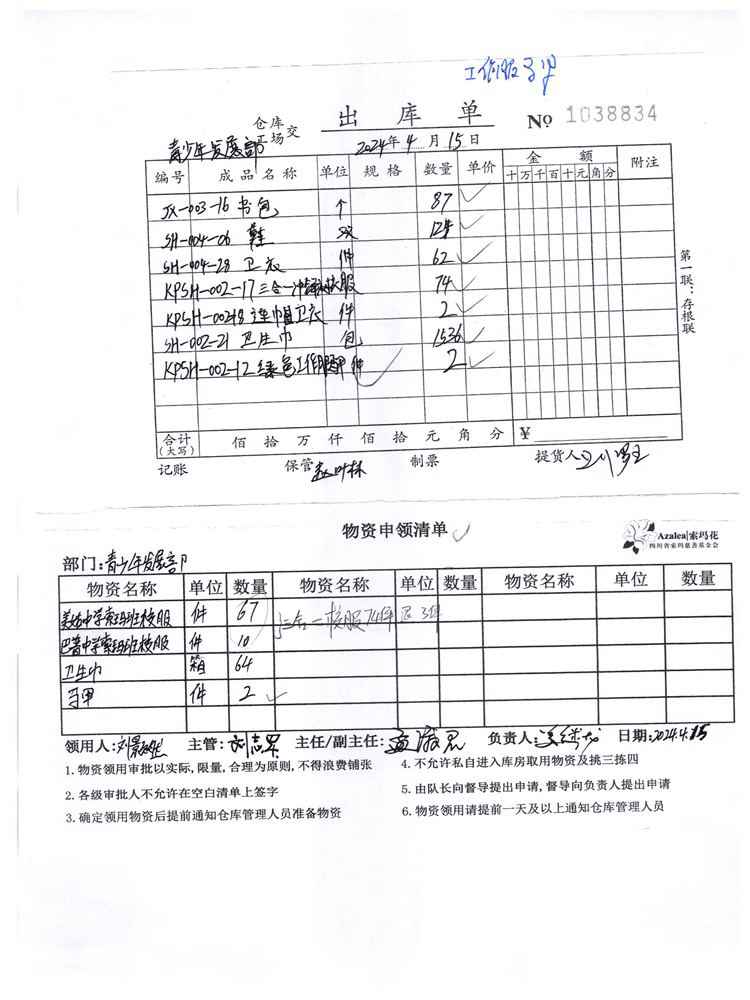 出库单
仓库
工场交
№ 1038834
青少年发展部
2024年4月15日
编号 成品名称 单位 规格 数量 单价 金额 附注
十 万 千 百 十 元 角 分
JX-003-16 书包 个 87
SH-004-06 鞋 双 124
SH-004-28 卫衣 件 62
KPSH-002-17 三合一冲锋衣校服 74
KPSH-002-18 连帽卫衣 件 2
SH-002-21 卫生巾 包 1536
KPSH-002-12 绿色工作服马甲 件 2
第一联：存根联
合计(大写) 佰 拾 万 仟 佰 拾 元 角 分 ¥
记账 保管 赵叶林 制票 提货人
物资申领清单
Azalea|索玛花
四川省索玛慈善基金会
部门：青少年发展部
物资名称 单位 数量 物资名称 单位 数量 物资名称 单位 数量
美姑中学索玛班校服 件 67 三合一校服74件 退3件
巴普中学索玛班校服 件 10
卫生巾 箱 64
马甲 件 2
领用人: 主管: 刘志军 主任/副主任: 负责人: 日期:2024.4.15
1. 物资领用审批以实际, 限量, 合理为原则, 不得浪费铺张
4. 不允许私自进入库房取用物资及挑三拣四
2. 各级审批人不允许在空白清单上签字
5. 由队长向督导提出申请, 督导向负责人提出申请
3. 确定领用物资后提前通知仓库管理人员准备物资
6. 物资领用请提前一天及以上通知仓库管理人员